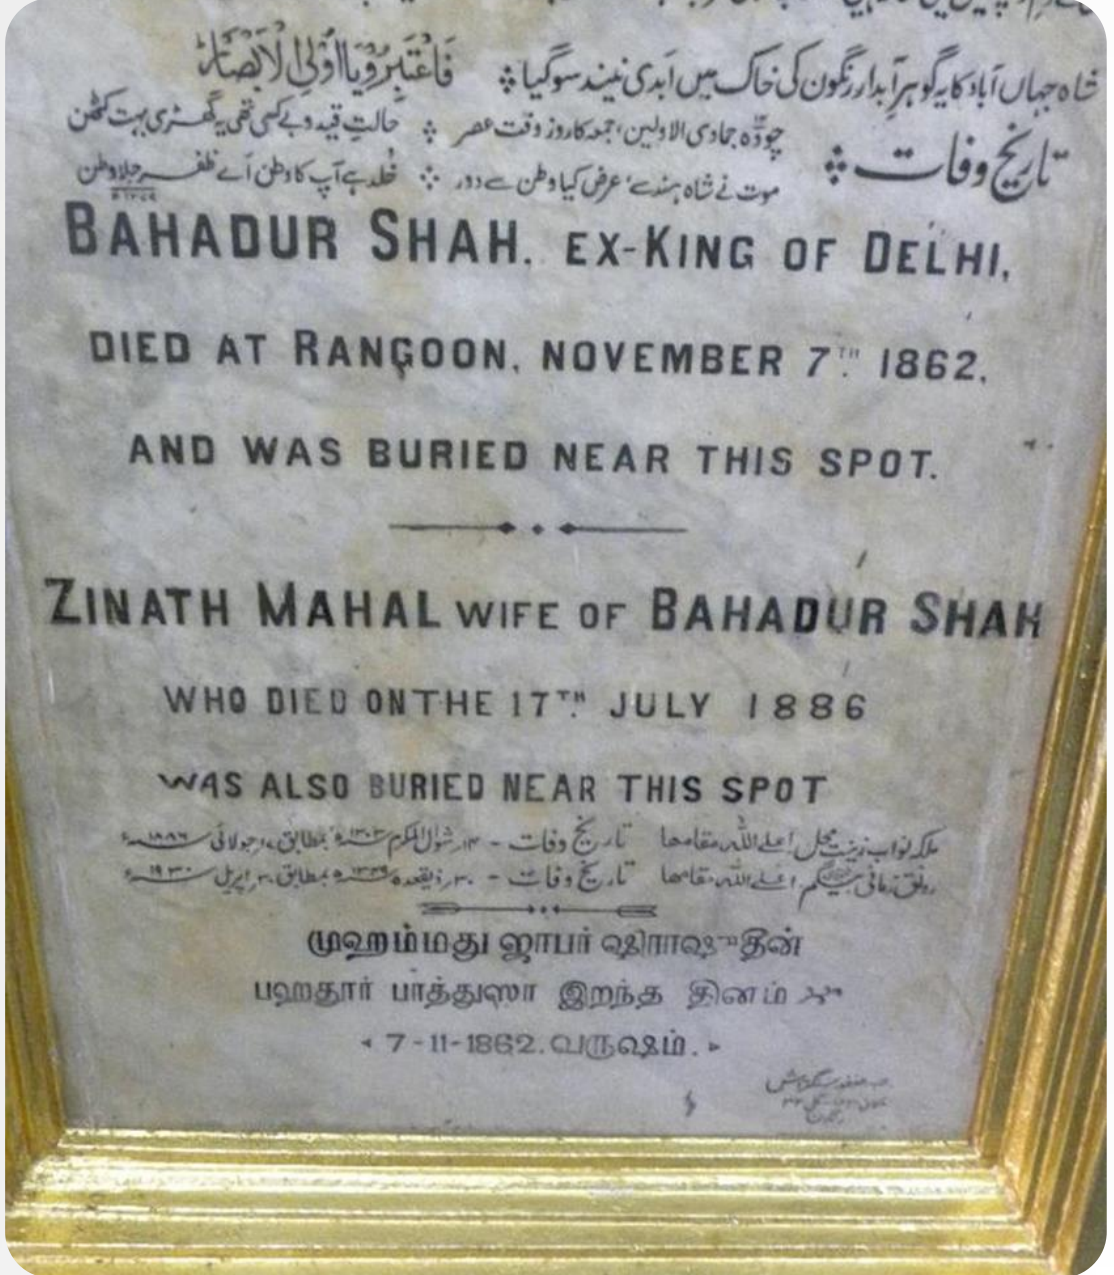 شاہ جہاں آباد کا یہ گوہرِ آبدار رنگون کی خاک میں ابدی نیند سو گیا فَاعْتَبِرُوْیَا اُوْلِی الْاَبْصَارْ
تاریخ وفات
چودّہ جمادی الاولین، جمعہ کا روز وقت عصر حالتِ قید و بےکسی تھی یہ گھڑی بہت کٹھن
موت نے شاہ ہند سے عرض کیا وطن سے دور خُلد ہے آپ کا وطن اَے ظفر جلا وطن
BAHADUR SHAH. EX-KING OF DELHI,
DIED AT RANGOON, NOVEMBER 7TH 1862,
AND WAS BURIED NEAR THIS SPOT.
ZINATH MAHAL WIFE OF BAHADUR SHAH
WHO DIED ON THE 17TH JULY 1886
WAS ALSO BURIED NEAR THIS SPOT
ملکہ نواب زینت محل اعلے اللہ مقامہا تاریخ وفات - ۱۴ر شوال المکرم ۱۳۰۳ھ بمطابق ۱۷ر جولائی ۱۸۸۶ء
رونق زمانی بیگم اعلے اللہ مقامہا تاریخ وفات - ۳۰ر ذیقعدہ بمطابق ۳۰ر اپریل ۱۹۳۰ء
முஹம்மது ஜாபர் ஷிராஷுதீன்
பஹதூர் பாத்துஸா இறந்த தினம்
7-11-1862. வருஷம்.